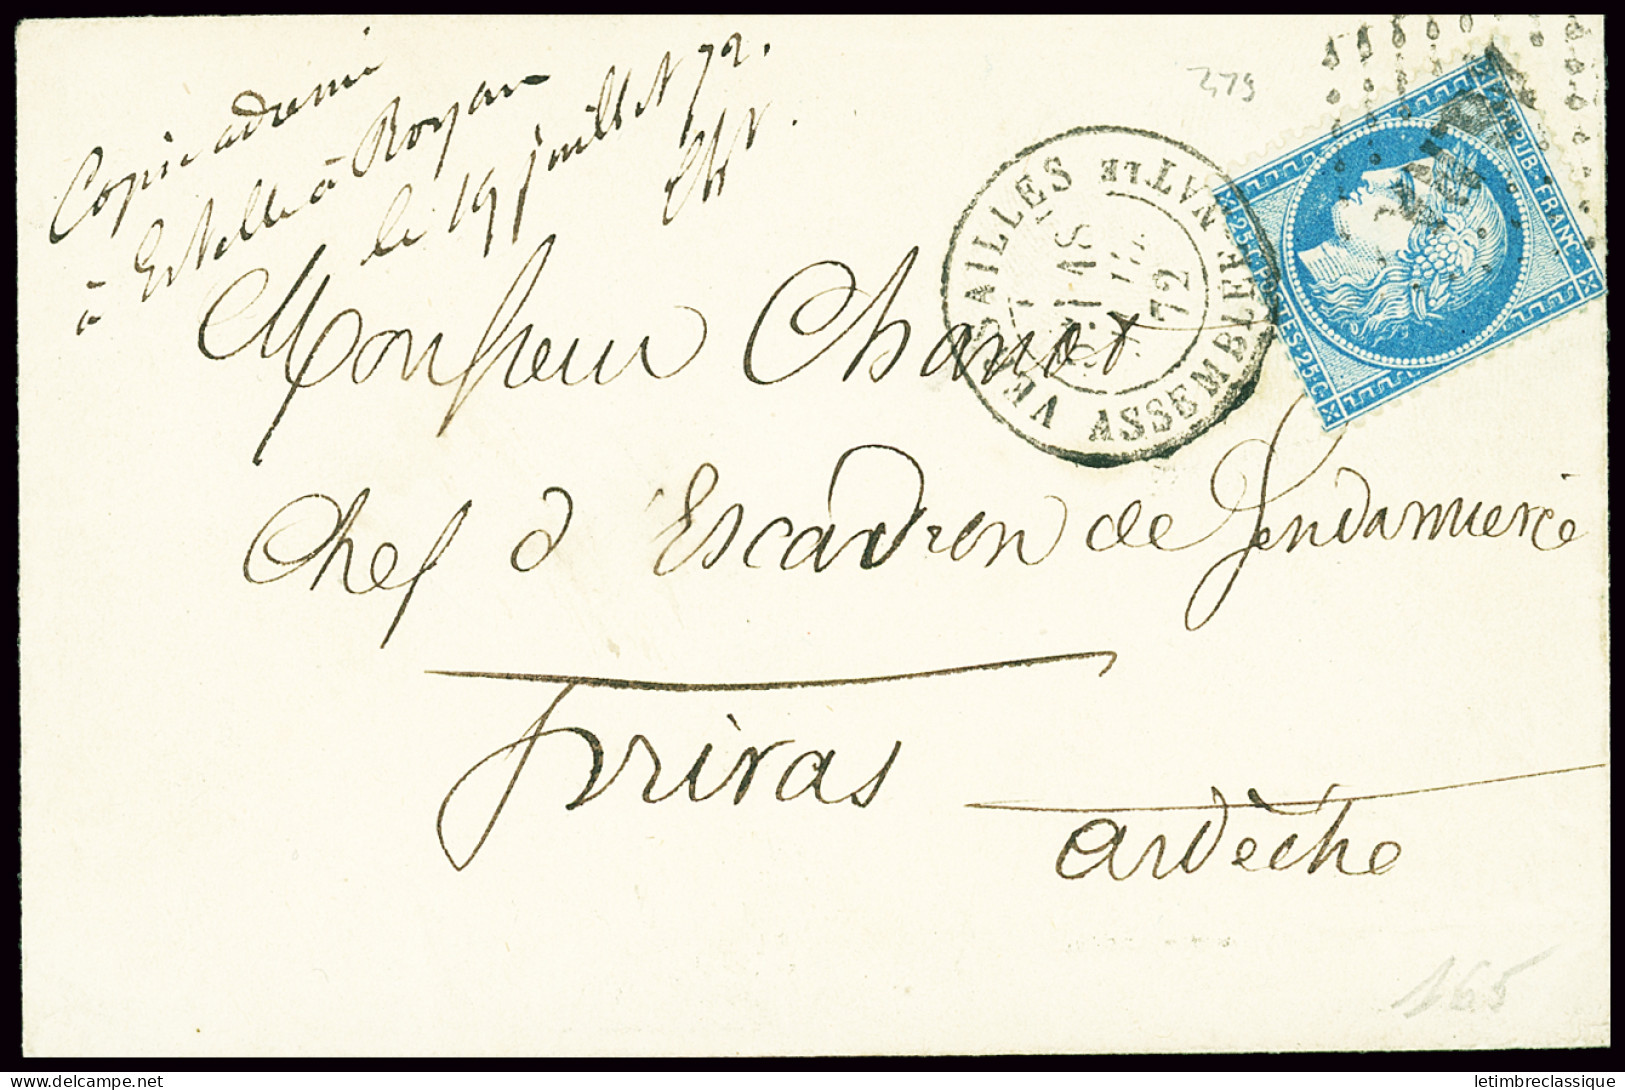 Copie adressée
à Estelle à Royan
le 19 juillet 72.
279
RÉPUB. FRANC.
25 C.
ES. 25 C
VERSAILLES
ASSEMBLÉE-NATLE
72
Monsieur Chanot
Chef d'Escadron de Gendarmerie
Privas
Ardèche
165
letimbreclassique